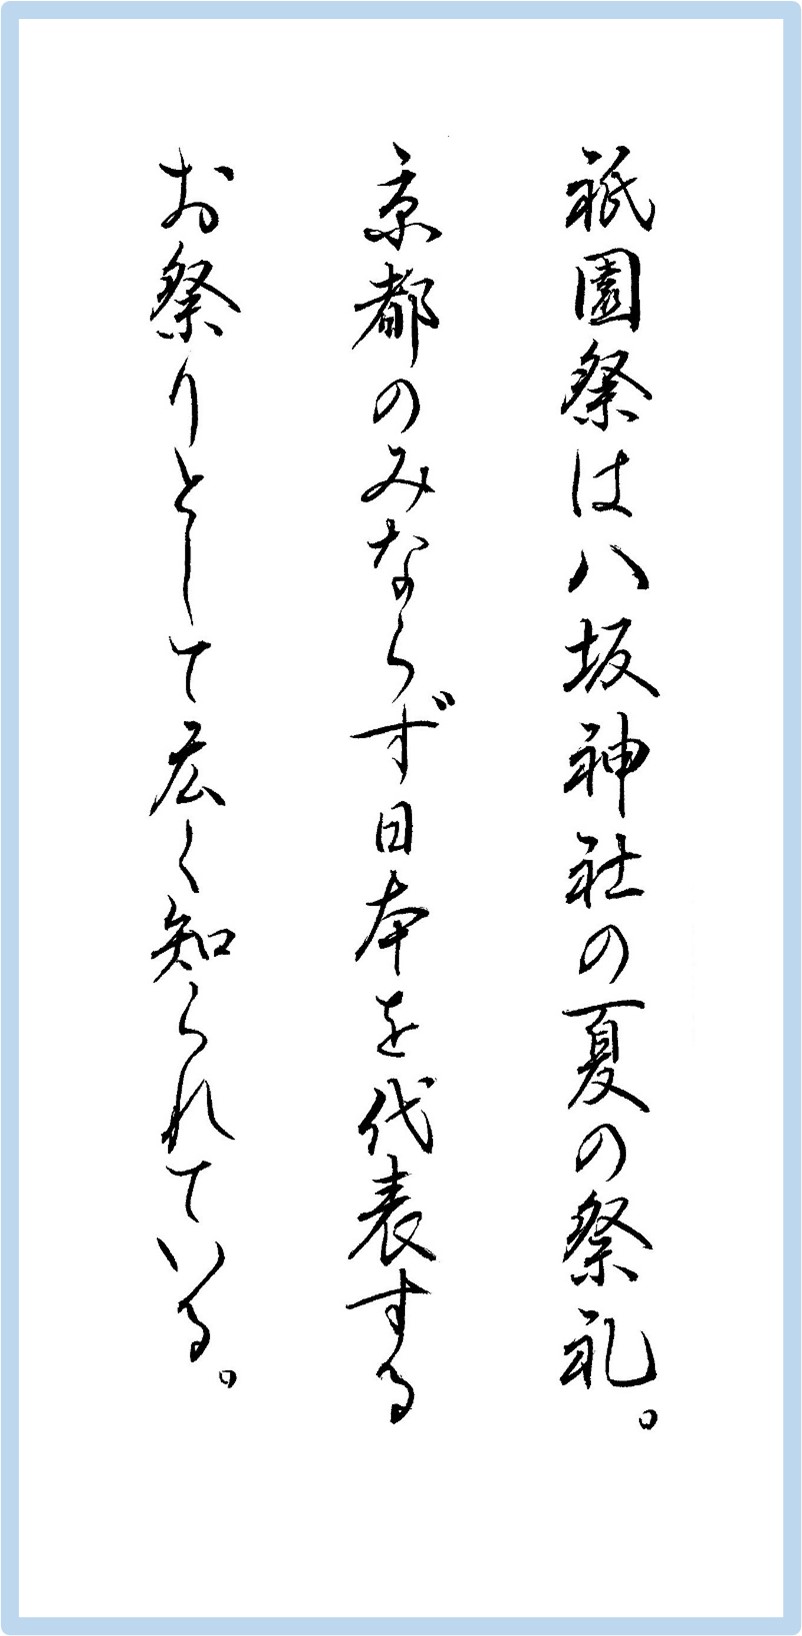 祇園祭は八坂神社の夏の祭礼。
京都のみならず日本を代表する
お祭りとして広く知られている。